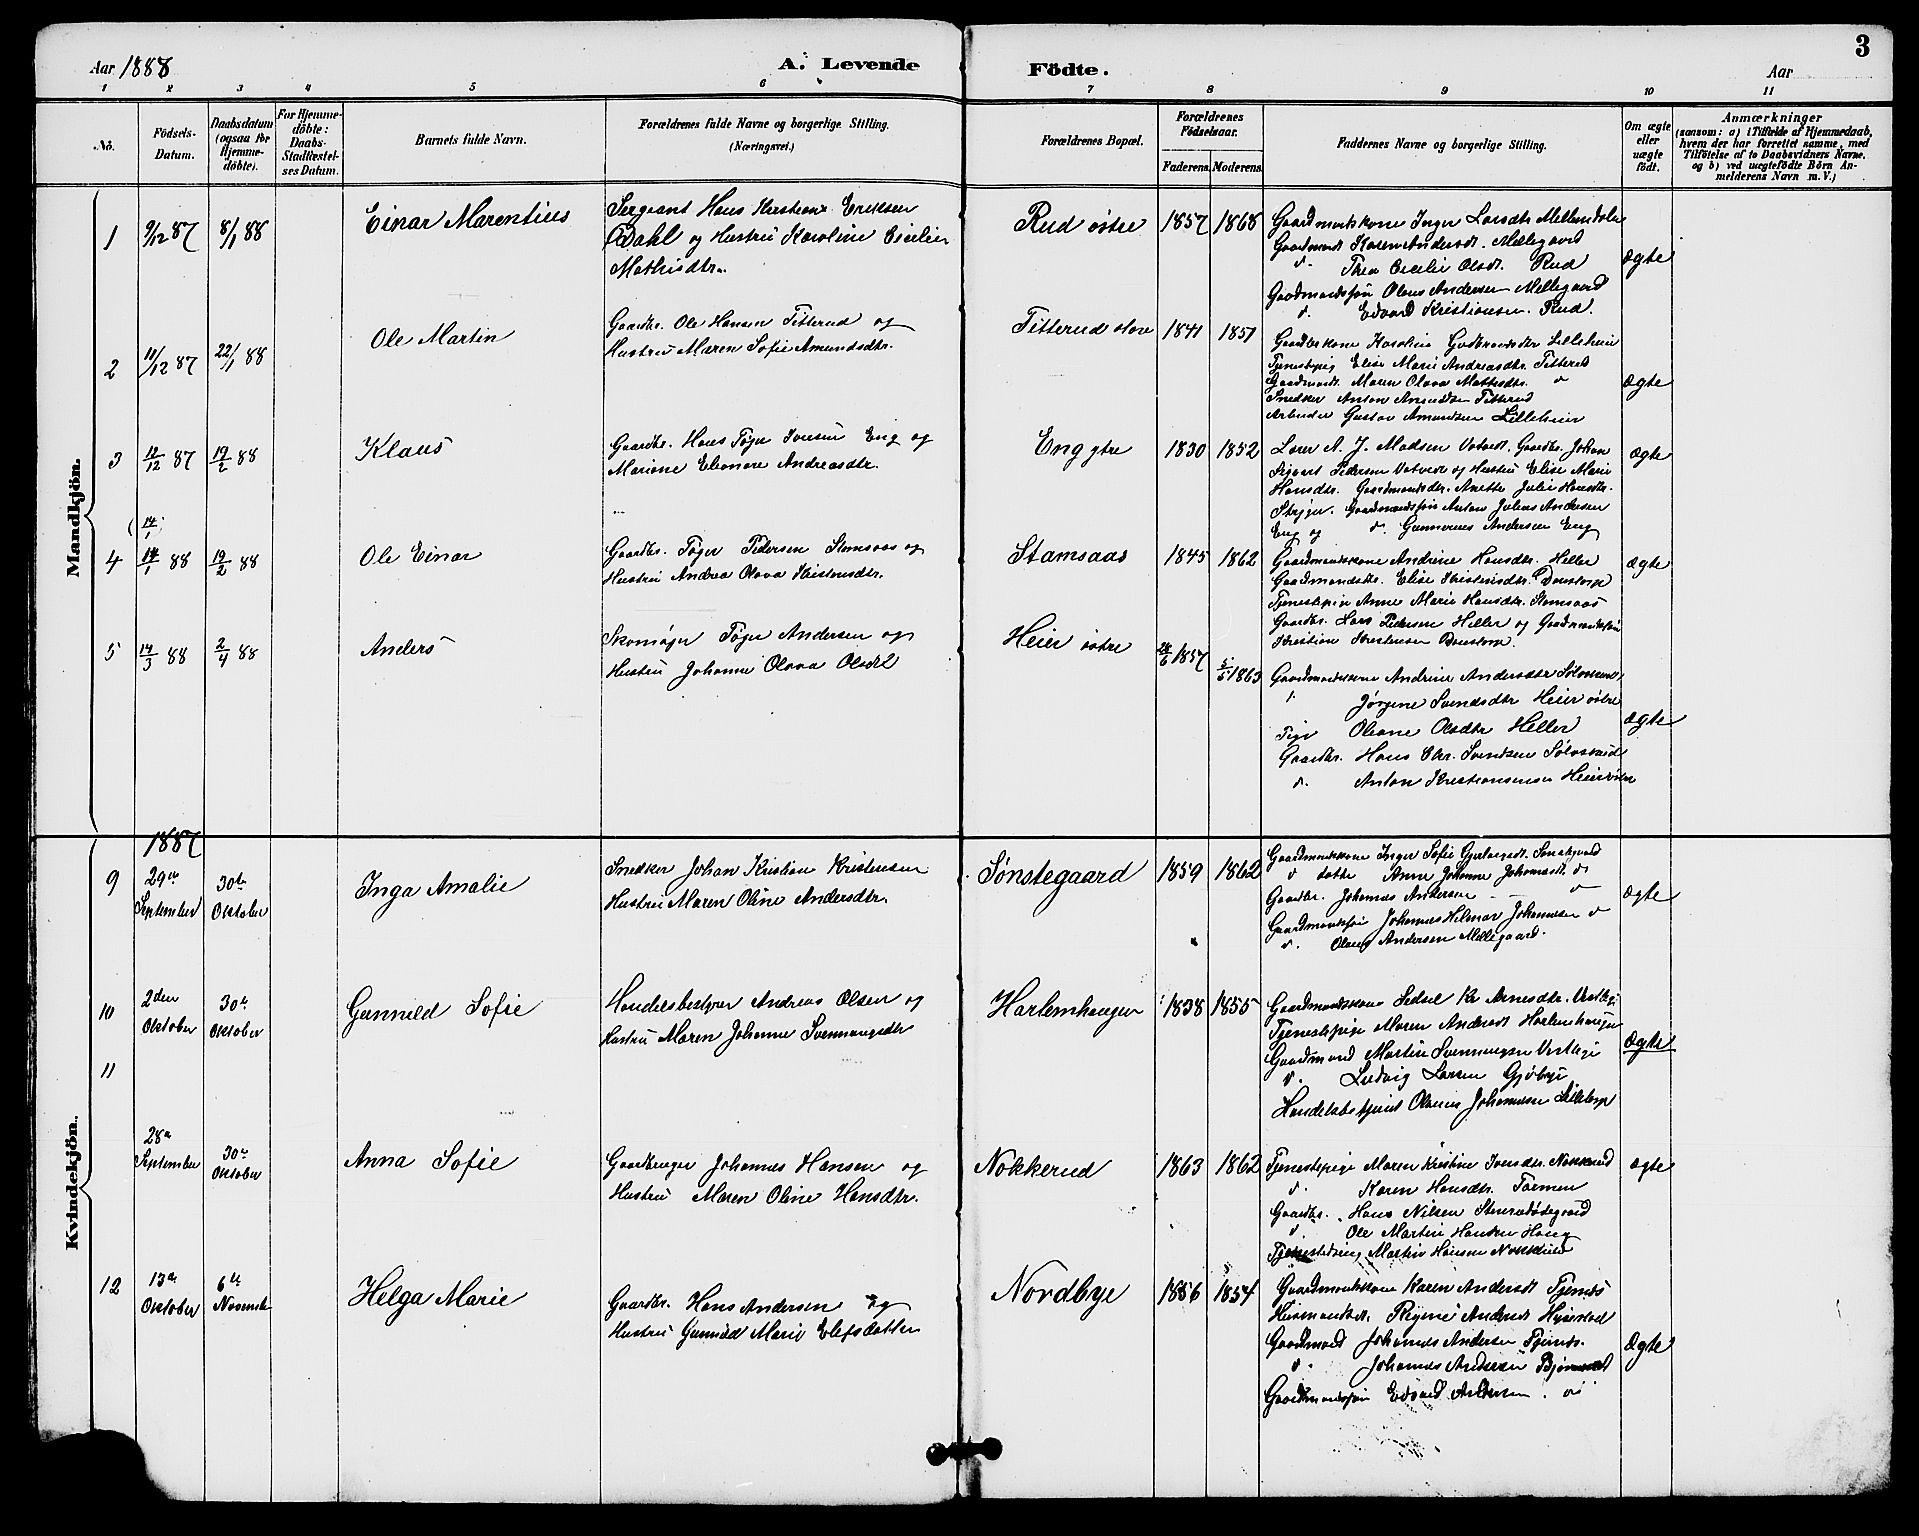 Aar 1888
A. Levende Födte.
Aar
3
1 2 3 4 5 6 7 8 9 10 11
No.
Födsels-Datum.
Daabsdatum (ogsaa for Hjemme-döbte).
For Hjemme-döbte: Daabs-Stadfæstel-ses Datum.
Barnets fulde Navn.
Forældrenes fulde Navne og borgerlige Stilling.
(Næringsvei.)
Forældrenes Bopæl.
Forældrenes Födselsaar.
Faderens. Moderens.
Faddernes Navne og borgerlige Stilling.
Om ægte eller uægte födt.
Anmærkninger
(saasom: a) i Tilfælde af Hjemmedaab, hvem der har forrettet samme, med Tilföielse af to Daabsvidners Navne, og b) ved uægtefödte Börn An-melderens Navn m. V.)
Mandkjön.
1 9/12 87 8/1 88 Einar Marentius
Sergeant Hans Kristian Eriksen
Dahl og Hustru Karoline Cicilie
Mathisdtr.
Rud østre 1857 1868
Gaardmandskone Inger Larsdtr
Gaardmandsdt Karen Andersdt. Møllegaard
d. Thea Cecilie Olsdt. Rud
Gaardmandsøn Olaus Andersen Møllegaard
d. Edvard Kristiansen Rud.
Ægte
2 11/12 87 22/1 88 Ole Martin
Gaardbr. Ole Hansen Titterud og
Hustru Maren Sofie Amundsdtr.
Titterud 1841 1851
Gaardbrkone Karoline Gudbrandsdtr Lilleheier
Tjenestepig Elise Marie Andreasdtr. Titterud
Gaardmandsdt. Maren Olava Mathisdtr. d
Snedker Anton Amundsen Titterud
Arbeider Gustav Amundsen Lilleheier
Ægte
3 11/12 87 19/2 88 Klaus
Gaardbr. Hans Tøger Iversen Eng og
Mariane Eleonore Andreasdtr.
Eng ytre 1830 1852
Lærer A. J. Madsen Votvedt. Gaardbr. Johan
Sigvart Pedersen Votvedt og Hustru Elise Marie
Hansdtr. Gaardmandsdtr. Anette Julie Hansdtr.
Gaardmandsøn Anton Julius Andersen
Eng og d. Gunnerius Andersen Eng
Ægte
(14/1)
4 14/1 88 19/2 88 Ole Einar
Gaardbr. Tøger Pedersen Stamsaas og
Hustru Andrea Olava Kristensdtr.
Stamsaas 1845 1862
Gaardmandskone Andrine Hansdtr. Heller
Gaardmandsdtr. Elise Kristensdtr.
Tjenestepige Anne Marie Hansdtr. Stamsaas
Gaardbr. Lars Pedersen Heller og Gaardmandsøn
Kristian Kristensen
Ægte
5 14/3 88 2/4 88 Anders
Skomager Tøger Andersen og
Hustru Johanne Olava Olsdtr
Heier østre 1857 5/5 1863
Gaardmandskone Andrine Andersdtr
d. Jørgine Svendsdtr Heier østre
Pige Oleane Olsdtr Heller
Gaardbr. Hans Chr. Svendsen
d. Anton Kristiansen Heier østre
Ægte
Kvindekjön.
1887
9 29de September 30te Oktober Inga Amalie
Snedker Johan Kristian Kristensen
Hustru Maren Oline Andersdtr.
Sønstegaard 1859 1862
Gaardmandskone Inger Sofie
d dotte Anne Johanne Johannesdt. d
Gaardbr. Johannes Andersen - d
Gaardmandsøn Johannes Hilmar Johannesen d
d. Olaus Andersen Møllegaard.
Ægte
10 2den Oktober 30te Oktober Gunnild Sofie
Handelsbestyrer Andreas Olsen og
Hustru Maren Johanne Svenningsdtr
Harlemhaugen 1838 1855
Gaardmandskone Sidsel Kr Arnesdtr.
Tjenestepige Maren Andersdt Harlemhaugen
Gaardmand Martin Svenningsen
d. Ludvig Larsen Gjøbye
Handelsbetjent Olaus Johannesen
Ægte
11 28de September 30te Oktober Anna Sofie
Gaardbruger Johannes Hansen og
Hustru Maren Oline Hansdtr.
Nokkerud 1863 1862
Tjenestepige Maren Kristine Iversdtr. Nokkerud
d. Karen Hansdtr.
Gaardbr. Hans Nilsen
d. Ole Martin Hansen Haug
Tjenestedreng Martin Hansen Nokkerud
Ægte
12 13de Oktober 6te November Helga Marie
Gaardbr. Hans Andersen og
Hustru Gunnild Marie Elefsdatter
Nordbye 1856 1854
Gaardmandskone Karen Andersdt Tjernæs
Andersdt
Gaardmand Johannes Andersen Tjernæs.
d. Johannes Andersen
Gaardmandsøn Edvard Andersen. d
Ægte